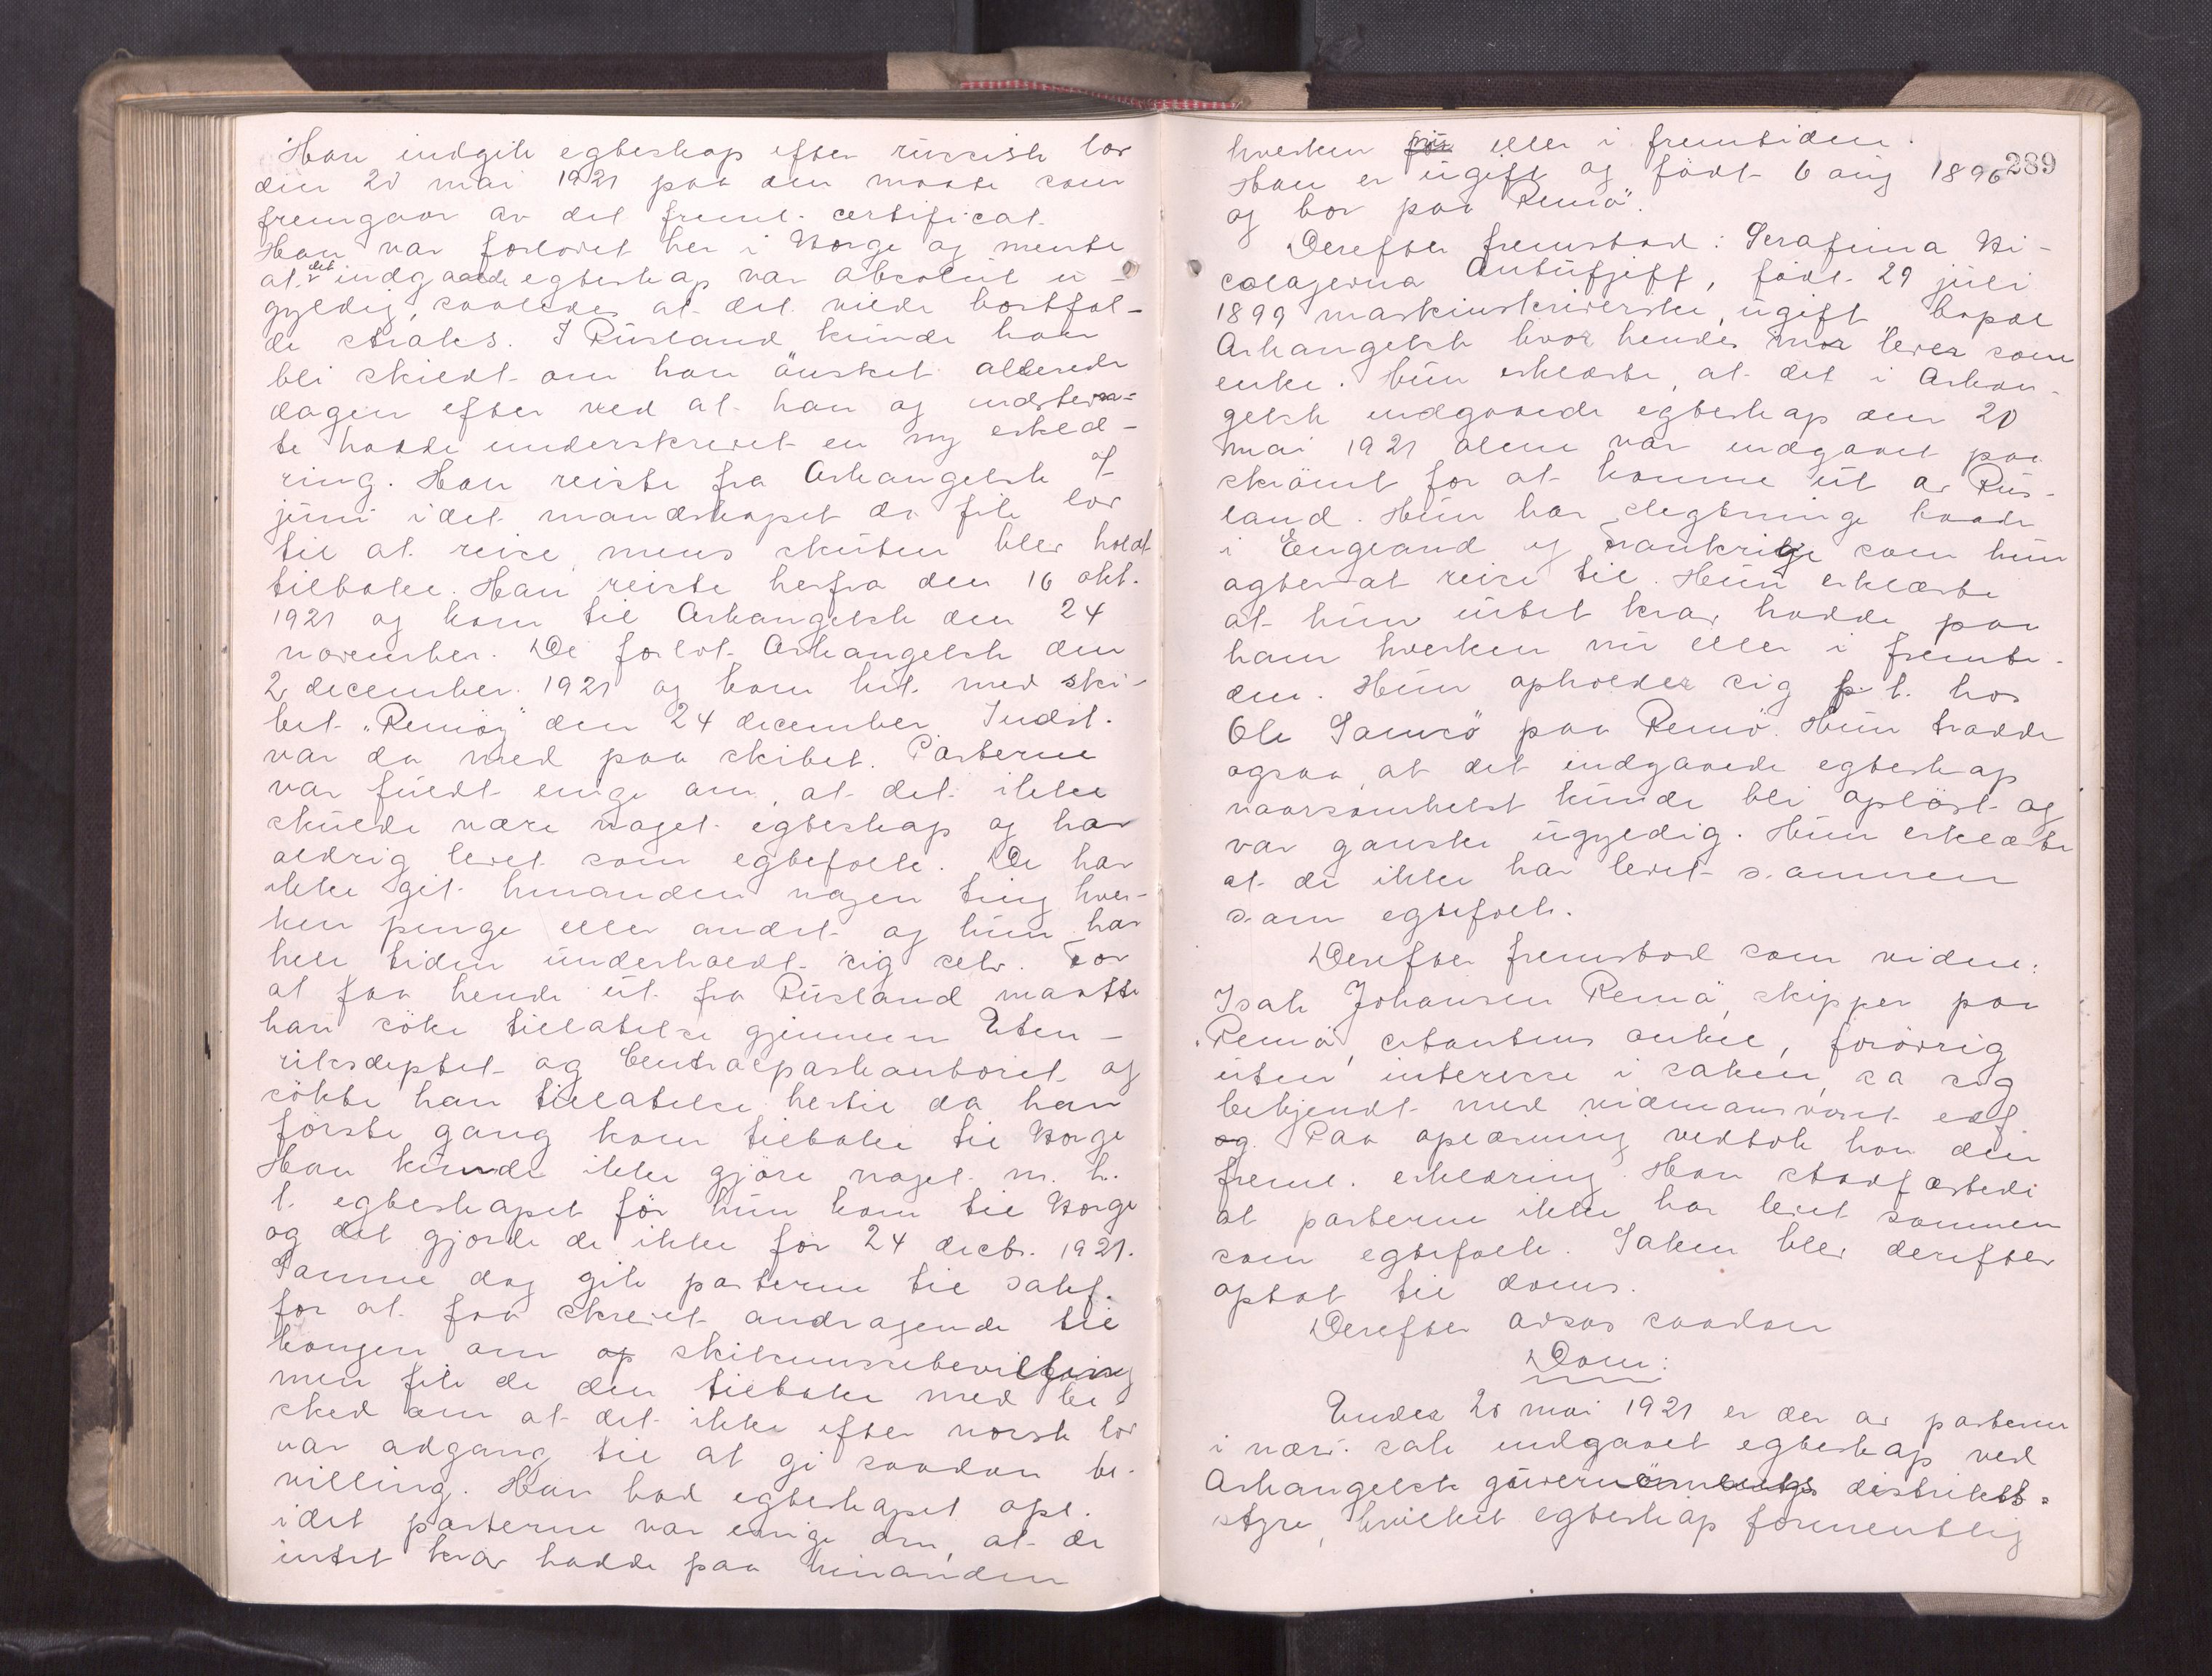 Han indgik egteskap efter russisk lov
den 20 mai 1921 paa den maate som
fremgaar av det freml. certificat.
Han var forlovet her i Norge og mente
at det indgaaede egteskap var absolut u-
gyldig, saaledes at det vilde bortfal-
de straks. I Rusland kunde han
bli skildt om han ønsket allerede
dagen efter ved at han og indstevn-
te hadde underskrevet en ny erklæ-
ring. Han reiste fra Arkangelsk af
juni idet mandskapet da fik lov
til at reise, mens skuten blev holdt
tilbake. Han reiste herfra den 16 okt.
1921 og kom til Arkangelsk den 24
november. De forlot Arkangelsk den
2 december 1921 og kom hit med ski-
bet "Remøy" den 24 december. Indst.
var da med paa skibet. Parterne
var fuldt enige om, at det ikke
skulde være noget egteskap og har
aldrig levet som egtefolk. De har
ikke git hinanden nogen ting hver-
ken penge eller andet og hun har
hele tiden underholdt sig selv. For
at faa hende ut fra Rusland maatte
han søke tillatelse gjennem Uten-
riksdeptet og Centralpaskontoret og
søkte han tillatelse hertil da han
første gang kom tilbake til Norge
Han kunde ikke gjøre noget m. h.
t. egteskapet før hun kom til Norge
og det gjorde de ikke før 24 decbr. 1921.
Samme dag gik parterne til sakf.
for at faa skrevet andragende til
kongen om op skilsmissebevilling
men fik de den tilbake med be-
sked om at det ikke efter norsk lov
var adgang til at gi saadan be-
villing. Han bad egteskapet opl.
idet parterne var enige om, at de
intet krav hadde paa hinanden
289
hverken nu eller i fremtiden.
Han er ugift og født 6 aug 1896
og bor paa Remø.
Derefter fremstod: Serafima Ni-
colajevna Antufjeff, født 29 juli
1899 maskinskriverske, ugift bopæl
Arkangelsk hvor hendes mor lever som
enke. Hun erklærte, at det i Arkan-
gelsk indgaaede egteskap den 20
mai 1921 alene var indgaaet paa
skrømt for at komme ut av Rus-
land. Hun har slegtninge baade
i England og Frankrige som hun
agter at reise til. Hun erklærte
at hun intet krav hadde paa
ham hverken nu eller i fremti-
den. Hun opholder sig p. t. hos
Ole Samsø paa Remø. Hun trodde
ogsaa, at det indgaaede egteskap
naarsomhelst kunde bli opløst og
var ganske ugyldig. Hun erklærte
at de ikke har levet sammen
som egtefolk.
Derefter fremstod som vidne:
Isak Johansen Remø, skipper paa
Remø, citantens onkel, forøvrig
uten interesse i saken, sa sig
bekjendt med vidneansvaret edf.
og. Paa oplæsning vedtok han den
freml. erklæring. Han stadfæstede
at parterne ikke har levet sammen
som egtefolk. Saken blev derefter
optat til doms.
Derefter avsas saadan
Dom:
Under 20 mai 1921 er der av parterne
i nærv. sak indgaaet egteskap ved
Arkangelsk guvernømentets distrikts-
styre, hvilket egteskap formentlig